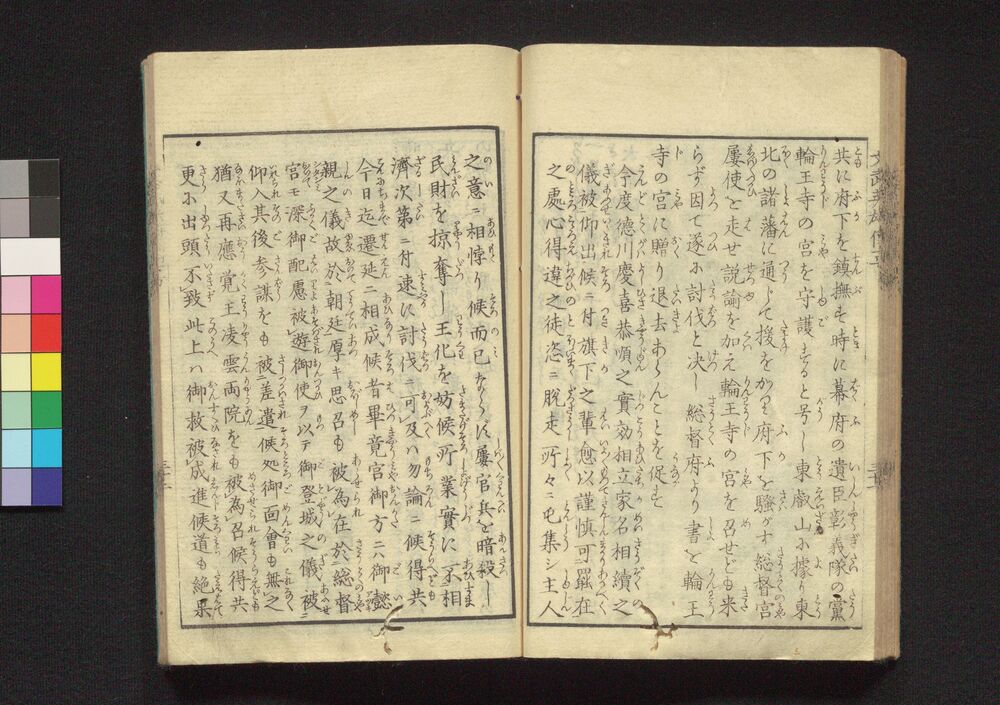 共に府下を鎮撫す時に幕府の遺臣彰義隊の黨
輪王寺の宮を守護すると号し東叡山に據り東
北の諸藩に通じて援をかつ府下を騒がす総督宮
屡使を走せ説諭を加え輪王寺の宮を召せども来
らず因て遂に討伐と決し総督府より書を輪王
寺の宮に贈り退去あらんことを促す
今度徳川慶喜恭順之實効相立家名相續之
儀被仰出候ニ付旗下之輩愈以謹慎可罷在
之處心得違之徒恣ニ脱走所々ニ屯集シ主人
之意ニ相悖り候而已ならず屡官兵を暗殺し
民財を掠奪し王化を妨候所業實に不相
濟次第ニ付速に討伐ニ可及ハ勿論ニ候得共
今日迄遷延ニ相成候者畢竟宮御方ニハ御懿
親之儀故於朝廷厚キ思召も被為在於総督
宮モ深御配慮被遊御使ヲ以テ御登城之儀被
仰入其後参謀をも被差遣候処御面會も無之
猶又再應覚王凌雲両院をも被為召候得共
更に出頭不致此上ハ御救被成進候道も絶果